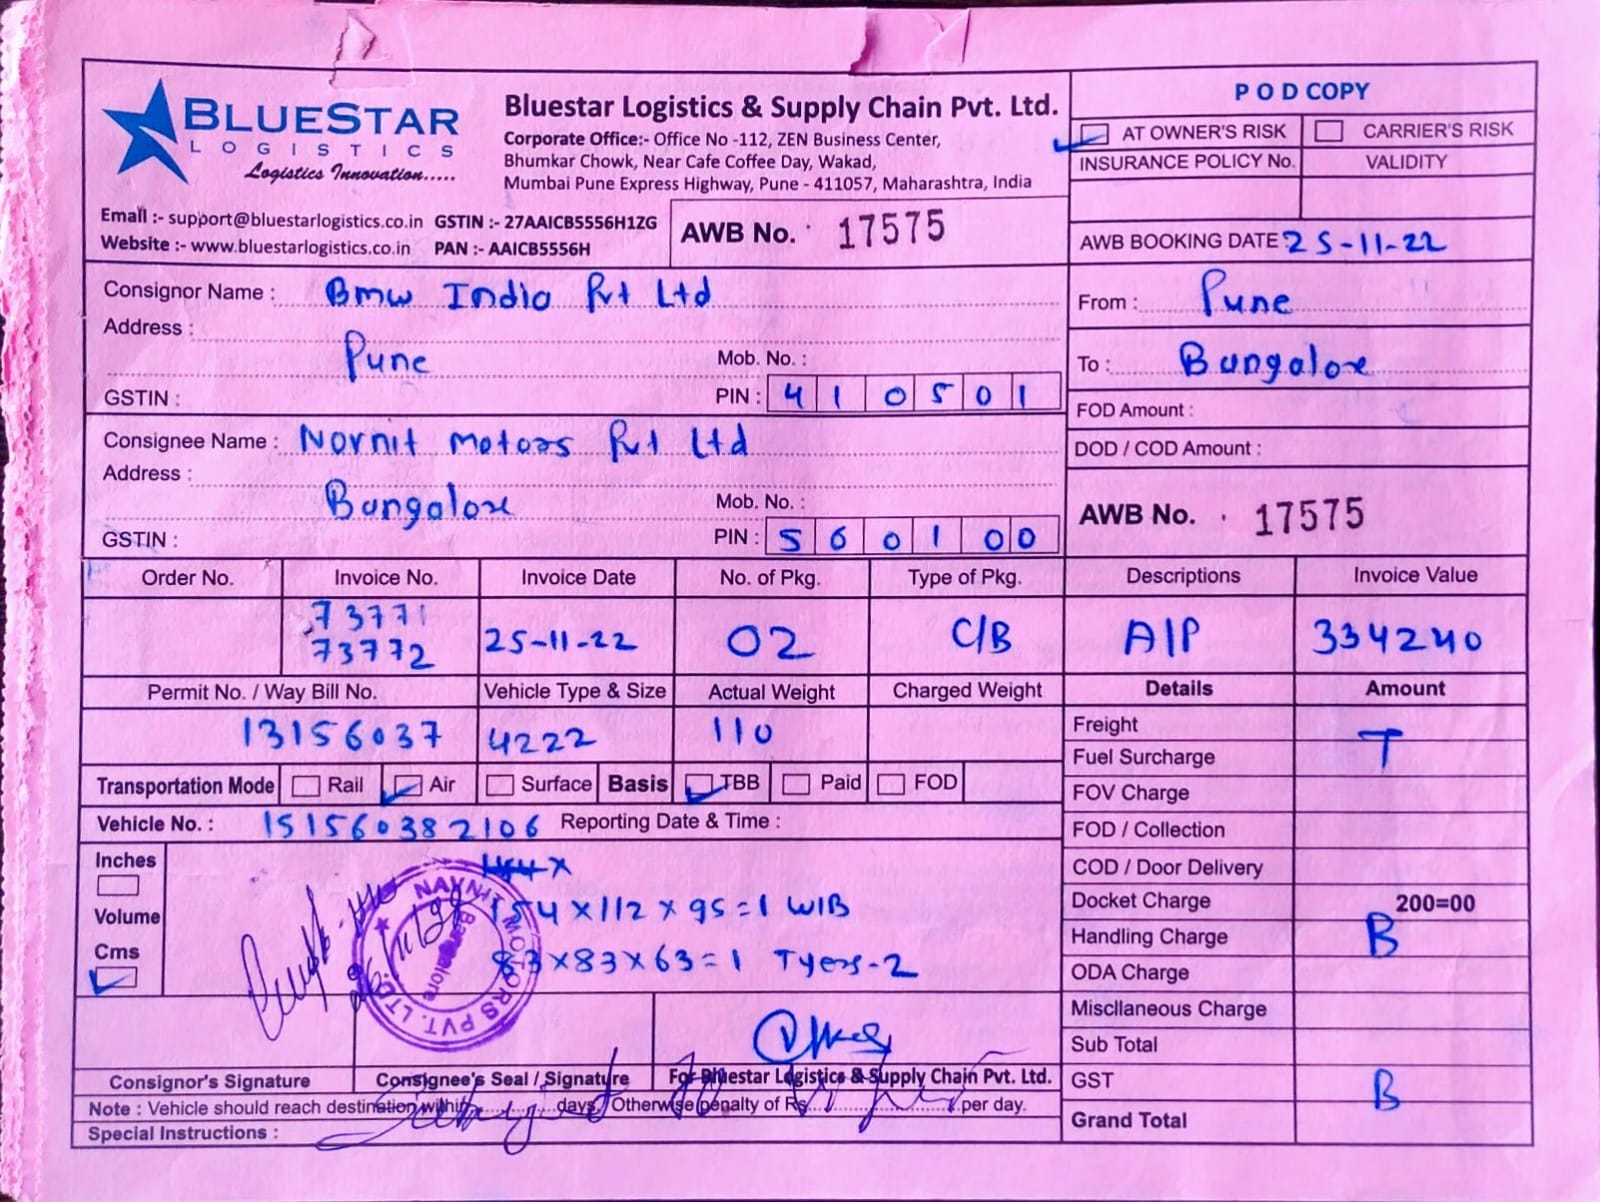 BLUESTAR
LOGISTICS
Logistics Innovation.....
Bluestar Logistics & Supply Chain Pvt. Ltd.
Corporate Office:- Office No -112, ZEN Business Center,
Bhumkar Chowk, Near Cafe Coffee Day, Wakad,
Mumbai Pune Express Highway, Pune - 411057, Maharashtra, India
Email :- support@bluestarlogistics.co.in GSTIN :- 27AAICB5556H1ZG
Website :- www.bluestarlogistics.co.in PAN :- AAICB5556H
AWB No. 17575
P O D COPY
AT OWNER'S RISK CARRIER'S RISK
INSURANCE POLICY No. VALIDITY
AWB BOOKING DATE : 25-11-22
Consignor Name : Bmw India Pvt Ltd
Address :
Pune Mob. No. :
GSTIN : PIN : 410501
From : Pune
To : Bangalore
FOD Amount :
DOD / COD Amount :
Consignee Name : Nornit Motors Pvt Ltd
Address :
Bangalore Mob. No. :
GSTIN : PIN : 560100
AWB No. 17575
Order No. Invoice No. Invoice Date No. of Pkg. Type of Pkg. Descriptions Invoice Value
73771
73772 25-11-22 02 C/B A/P 334240
Permit No. / Way Bill No. Vehicle Type & Size Actual Weight Charged Weight Details Amount
13156037 4222 110
Transportation Mode Rail Air Surface Basis TBB Paid FOD
Vehicle No. : 151560382106 Reporting Date & Time :
Inches
Volume
Cms
154x112x95=1 WIB
83x83x63=1 Tyers-2
NAVNIT MOTORS PVT. LTD.
Bangalore
Freight
T
Fuel Surcharge
FOV Charge
FOD / Collection
COD / Door Delivery
Docket Charge 200=00
Handling Charge B
ODA Charge
Miscllaneous Charge
Sub Total
GST B
Grand Total
Consignor's Signature Consignee's Seal / Signature For Bluestar Logistics & Supply Chain Pvt. Ltd.
Note : Vehicle should reach destination within..............days. Otherwise penalty of Rs........................per day.
Special Instructions :